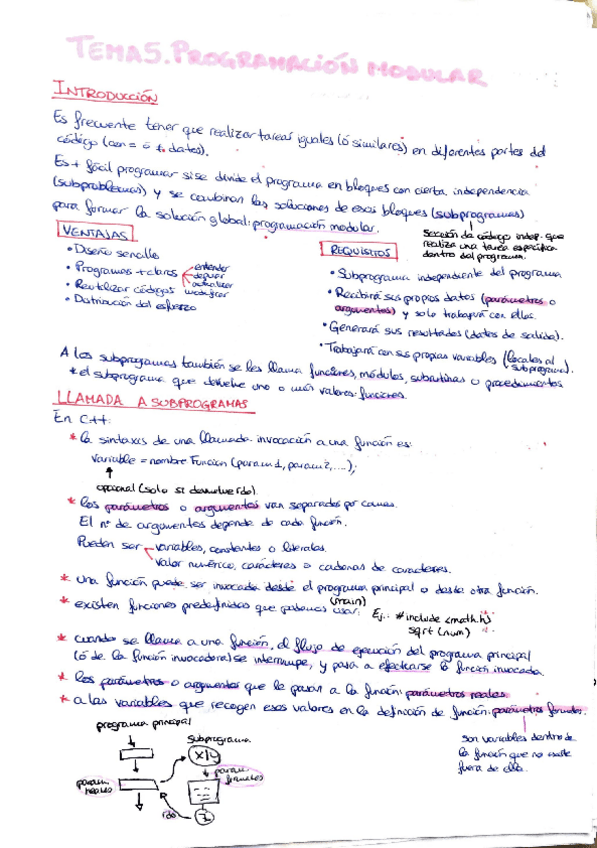 TEMA 5. PROGRAMACIÓN MODULAR
INTRODUCCIÓN
Es frecuente tener que realizar tareas iguales (ó similares) en diferentes partes del
código (con = ó ≠ datos).
Es + fácil programar si se divide el programa en bloques con cierta independencia
(subproblemas) y se combinan las soluciones de esos bloques (subprogramas)
para formar la solución global: programación modular.
sección de código indep. que
realiza una tarea específica
dentro del programa.
VENTAJAS
• Diseño sencillo
• Programas + claros
entender
depurar
actualizar
modificar
• Reutilizar códigos
• Distribución del esfuerzo
REQUISITOS
• Subprograma independiente del programa
• Recibirá sus propios datos (parámetros o
argumentos) y solo trabajará con ellos.
• Generará sus resultados (datos de salida).
• Trabajará con sus propias variables (locales al
subprograma).
A los subprogramas también se les llama funciones, módulos, subrutinas o procedimientos
* el subprograma que devuelve uno o más valores: funciones.
LLAMADA A SUBPROGRAMAS
En C++:
* la sintaxis de una llamada invocación a una función es:
variable = nombre Función (param1, param2, ....);
opcional (solo si devuelve rdo).
* los parámetros o argumentos van separados por comas.
El nº de argumentos depende de cada función.
Pueden ser
variables, constantes o literales.
valor numérico, carácteres o cadenas de carácteres.
* una función puede ser invocada desde el programa principal o desde otra función.
(main)
* existen funciones predefinidas que podemos usar: Ej.: #include <math.h>
sqrt (num)
* cuando se llama a una función, el flujo de ejecución del programa principal
(ó de la función invocadora) se interrumpe, y pasa a efectuarse la función invocada.
* los parámetros o argumentos que le pasan a la función: parámetros reales.
* a las variables que recogen esos valores en la definición de función: parámetros formales.
son variables dentro de
la función que no existe
fuera de ella.
programa principal
subprograma
x/y
param.
reales
param.
formales
rdo